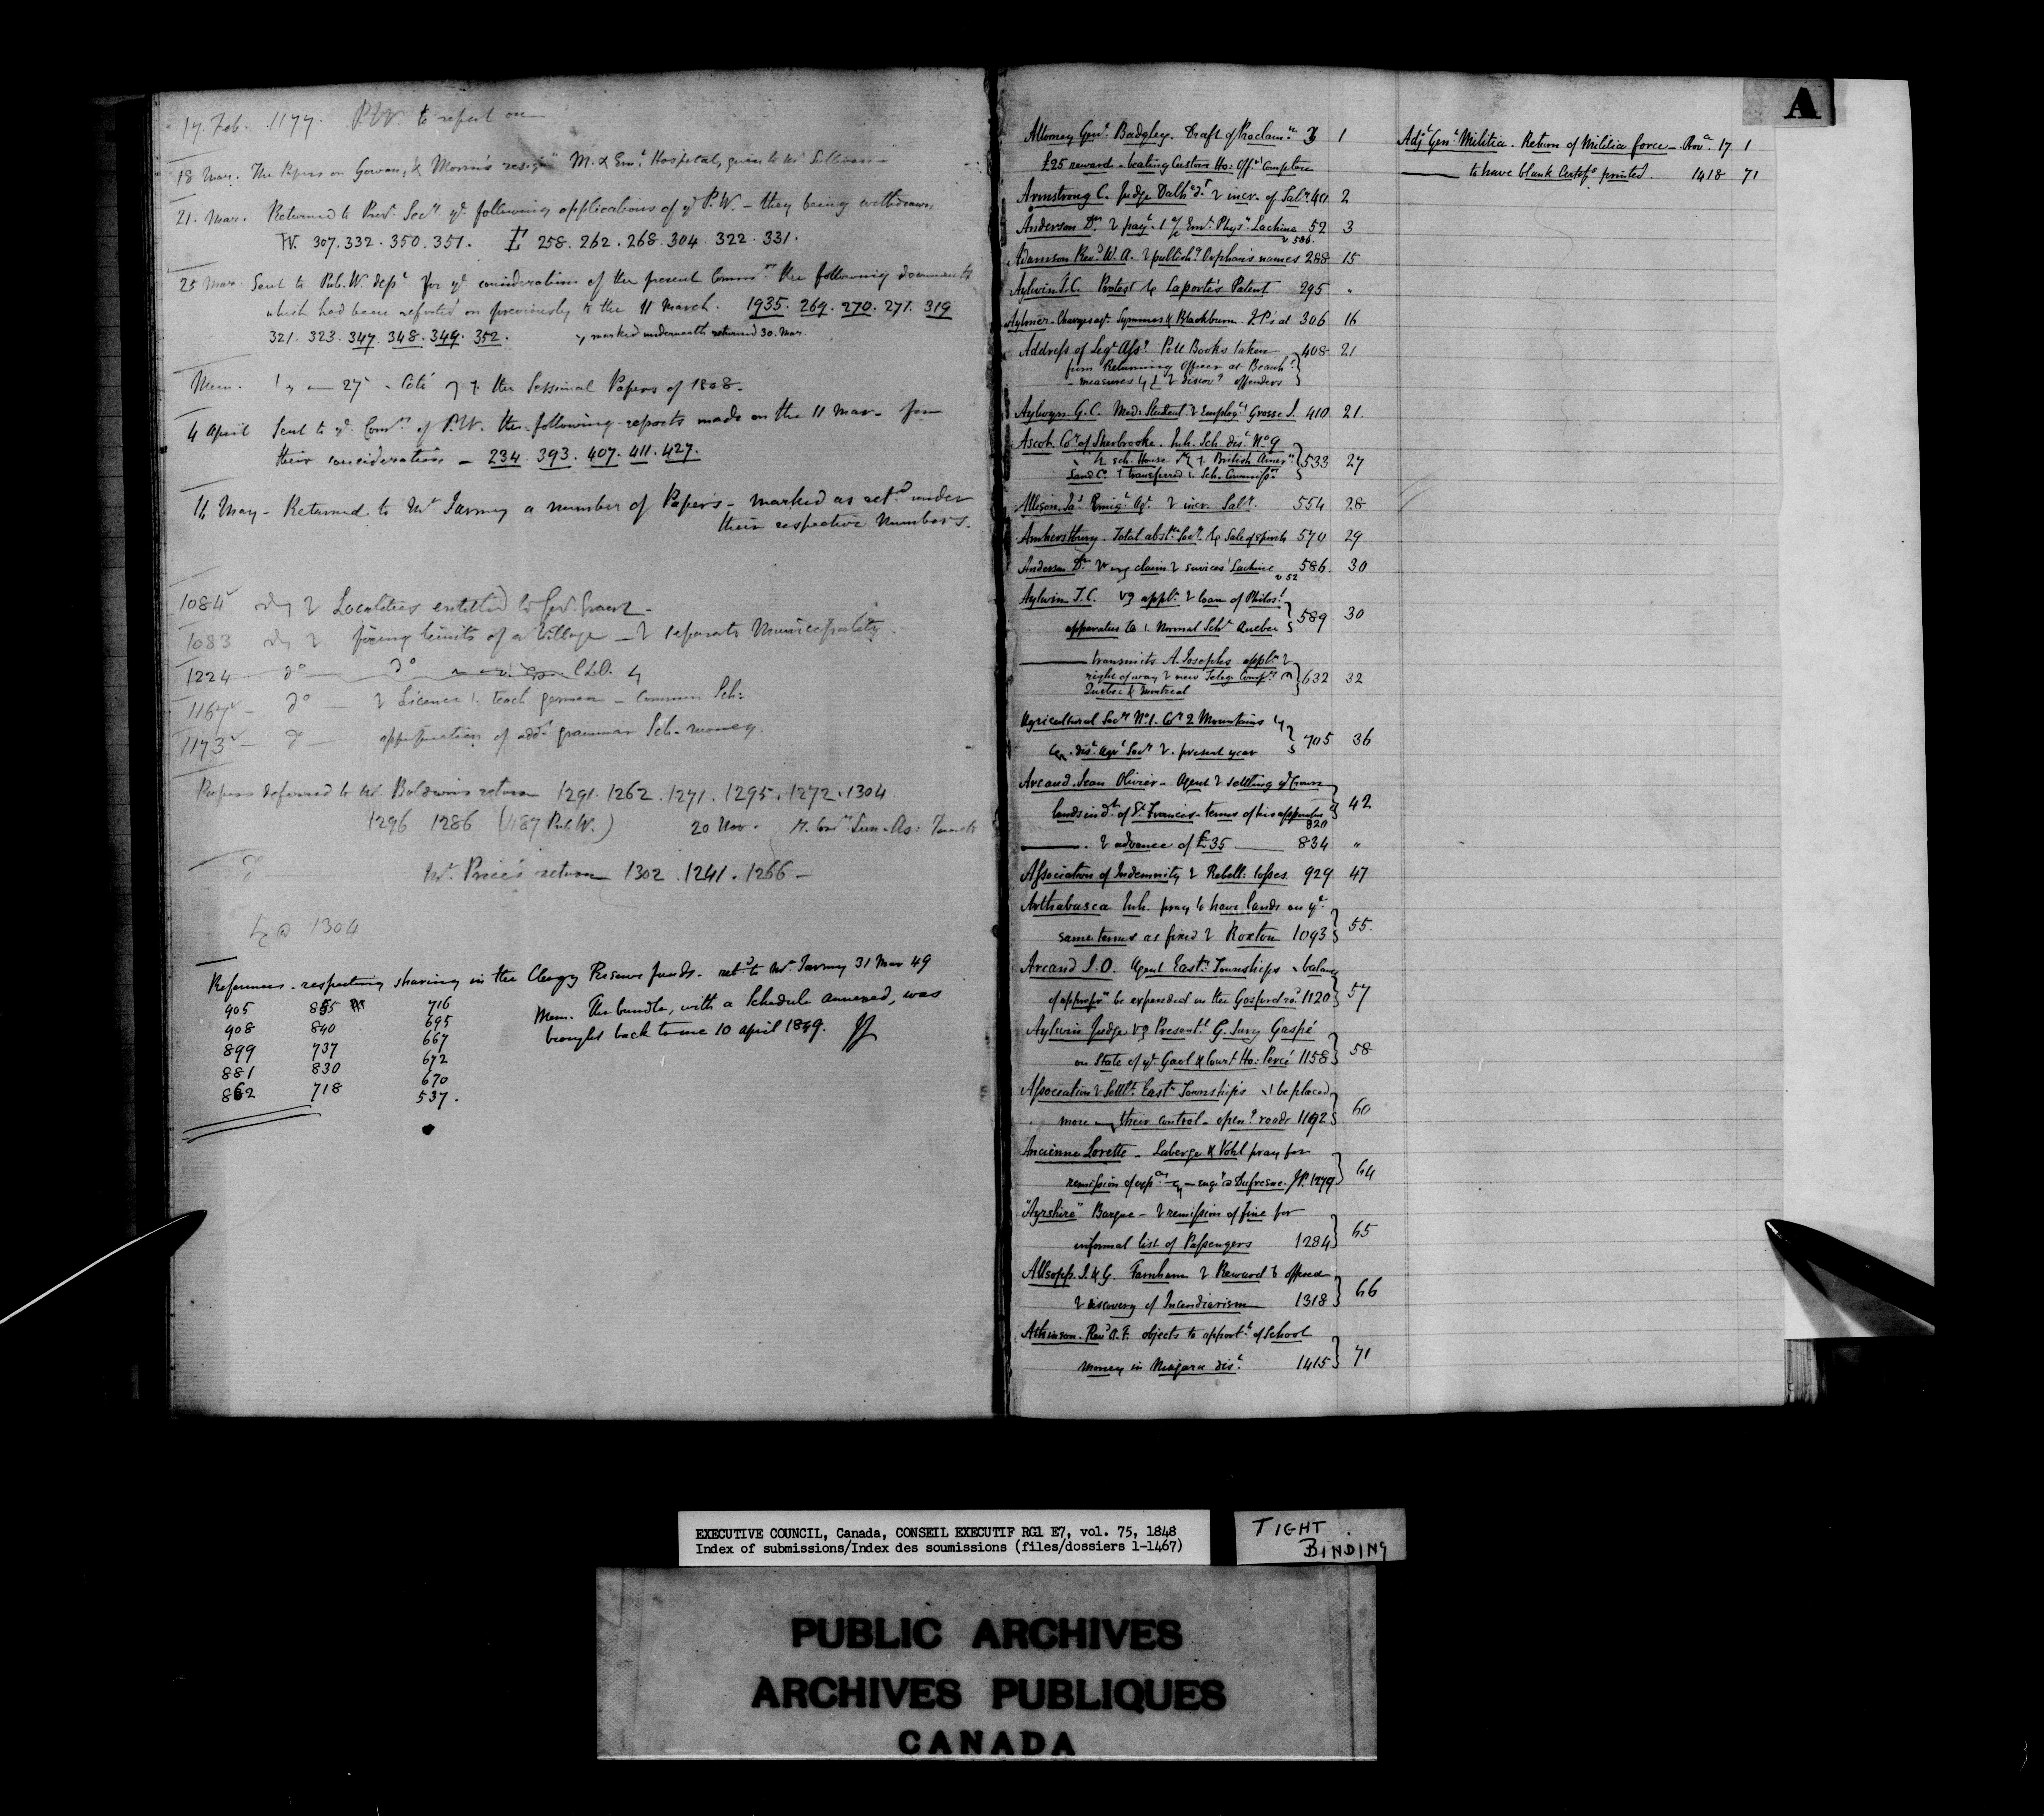 17. Feb. 1177. P.W. to report on
18 Mar. The Papers on Gowan, & Morrin's M. & Em.t Hospital, given to Mr Sullivan
21. Mar. Returned to Prov.l Sec.y ye following applications of ye P.W. – they being withdrawn
W. 307. 332. 350. 351. E 258. 262. 268. 304. 322. 331.
25 Mar. Sent to Pub. W. dept for ye consideration of the present Comm.rs the following documents
which had been reported on previously to the 11 March. 1935. 269. 270. 271. 319
321. 323. 347. 348. 349. 352. marked underneath returned 30. Mar.
Mem. 27 – Coté the Sessional Papers of 1808.
4 April Sent to ye Com.rs of P.W. the following reports made on the 11 Mar – for
their consideration – 234. 393. 407. 411. 427.
11 May – Returned to Mr Tarney a number of Papers – marked as ret.d under
their respective Numbers.
1084 Localities entitled to Gov. Grant –
1083 fixing limits of a Village – separate Municipality.
1224 do do
1167 – do – Licence teach german – Common Sch:
1173 – do – apportion of add.l grammar Sch. money.
Papers deferred to Mr. Baldwin's return 1291. 1262. 1271. 1295. 1272. 1304
1296 1286 (1187 Pub W.) 20 Nov.
do Mr. Price's return 1302. 1241. 1266 –
1304
References respecting sharing in the Clergy Reserve funds. ret.d to Mr Tarney 31 Mar 49
905 855 716
908 840 695
899 737 667
881 830 672
862 718 670
537.
Mem. The bundle, with a Schedule annexed, was
brought back to me 10 April 1849.
A
Attorney Gen.l Badgley. Draft of Proclam.n 3 1
£25 reward – beating Custom Ho: Off.r Compton
Armstrong C. Judge Dalh. incr. of Sal.y 401 2
Anderson Dr pay.t Em.t Phys.n Lachine 52 3
v 586.
Adamson Rev.d W. A. publish.g Orphan's names 288 15
Aylwin T.C. Protest Laporte's Patent 295 "
Aylmer – Charges ag.t Symmes & Blackburn J.P's at 306 16
Address of Leg. Ass.y Poll Books taken 408 21
from Returning Officer at Beauh.
– measures discov.g offenders
Aylwyn G. C. Med: Student Employ.t Grosse I. 410 21.
Ascot. Co.y of Sherbrooke. Inh. Sch. dis.t No 9
sch. House British Amer.n 533 27
Land Co. transferred Sch. Commiss.rs
Allison Ja.s Emig.t Ag.t incr. Sal.y 554 28
Amherstburg. Total abst.ce Soc.y Sale of spirits 570 29
Anderson Dr claim services Lachine 586. 30
v 52
Aylwin T. C. appl.n loan of Philos.l
apparatus to Normal Sch.l Quebec 589 30
transmits A. Josephs appl.n
right of way new Teleg. Comp.y 632 32
Quebec & Montreal
Agricultural Soc.y No 1. Co.y 2 Mountains
dis.t Agr.l Soc.y present year 705 36
Arcand Jean Olivier – Agent settling ye Crown
lands in d.t of St. Francis – terms of his appointm.t 820 42
advance of £35 834 "
Association of Indemnity Rebell: losses. 929 47
Arthabasca Inh. pray to have lands on ye
same terms as fixed Roxton 1093 55.
Arcand J. O. Agent East.n Townships balance
of approp.n be expended on the Gosford ro.d 1120 57
Aylwin Judge Present.t G. Jury Gaspé
on State of ye Gaol & Court Ho: Percé 1158 58
Association Settl.t East.n Townships be placed
more their control – open.g roads 1192 60
Ancienne Lorette – Laberge & Vohl pray for
remission of Dufresne J.P. 1279 64
"Ayrshire" Barque – remission of fine for
informal list of Passengers 1284 65
Allsopp. J. & G. Farnham Reward offered
discovery of Incendiarism 1318 66
Atkinson. Rev.d A. F. objects to apport.t of School
money in Niagara dis.t 1415 71
Adj.t Gen.l Militia. Return of Militia force – 17 1
to have blank Certif.s printed. 1418 71
EXECUTIVE COUNCIL, Canada, CONSEIL EXECUTIF RG1 E7, vol. 75, 1848
Index of submissions/Index des soumissions (files/dossiers 1-1467)
TIGHT
BINDING
PUBLIC ARCHIVES
ARCHIVES PUBLIQUES
CANADA